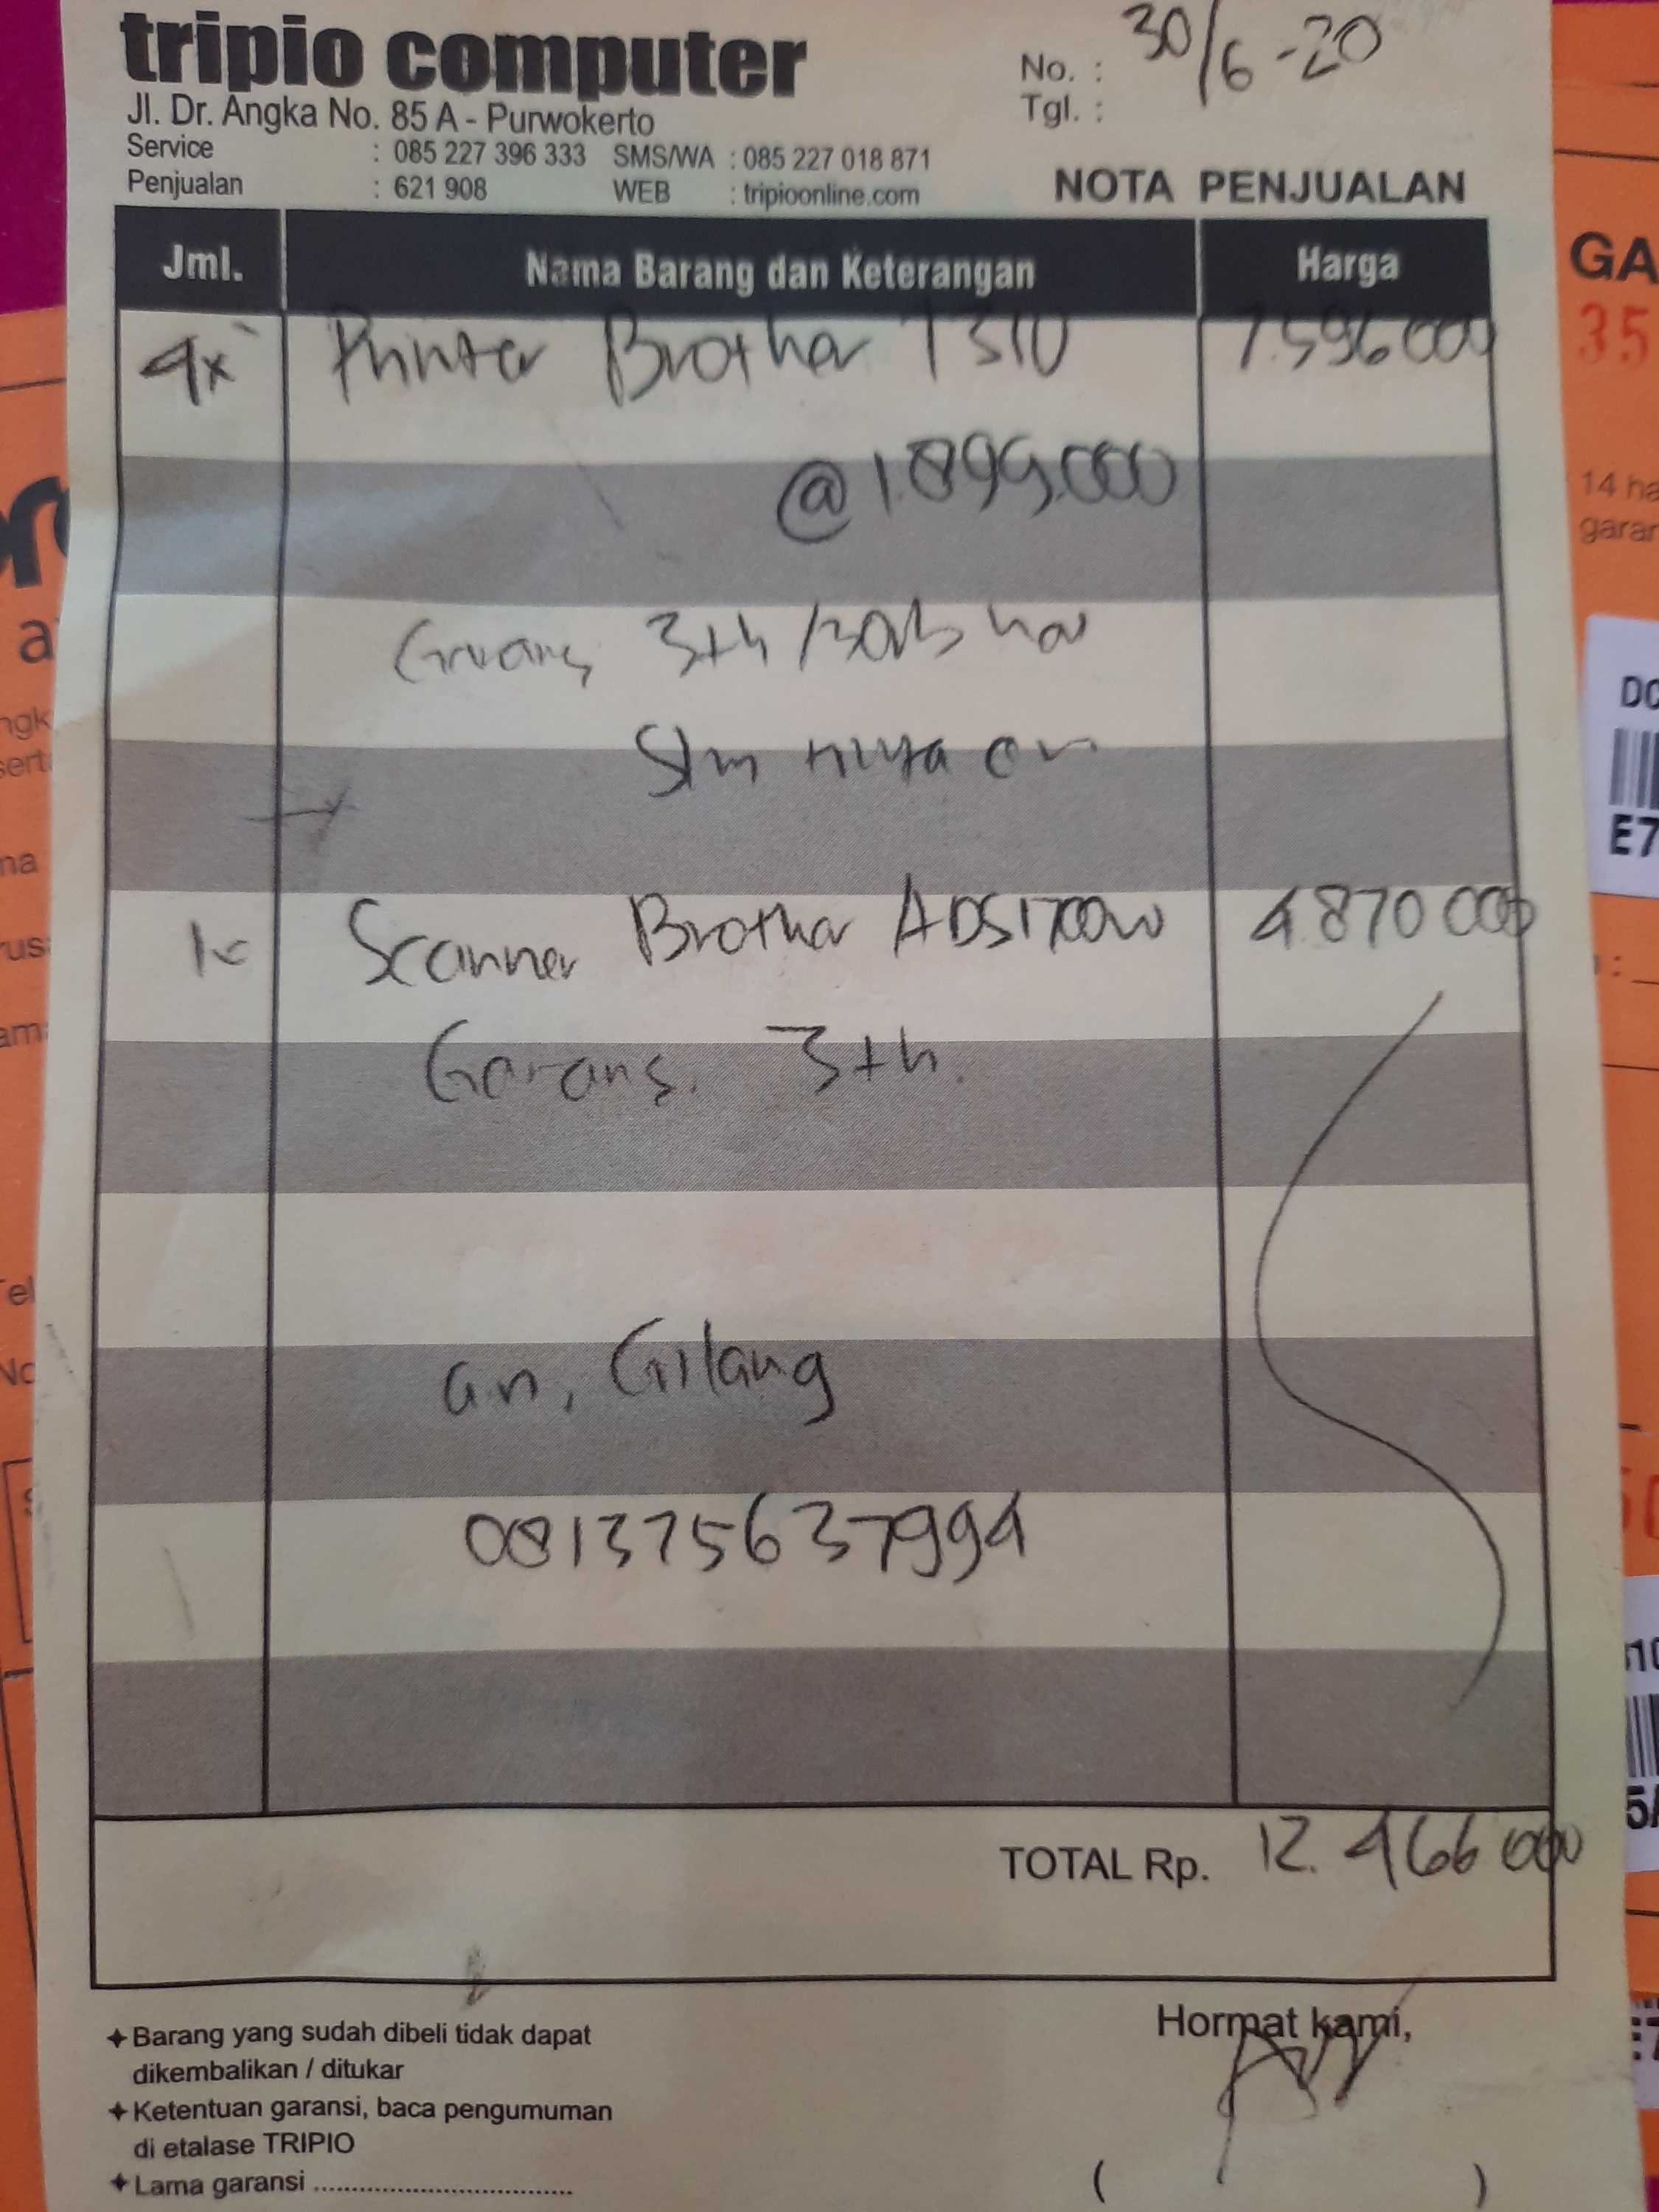 tripio computer
Jl. Dr. Angka No. 85 A - Purwokerto
Service : 085 227 396 333 SMS/WA : 085 227 018 871
Penjualan : 621 908 WEB : tripioonline.com
No. : 30/6-20
Tgl. :
NOTA PENJUALAN
Jml. Nama Barang dan Keterangan Harga
4x Printer Brother T310 7.596 000
@ 1.899.000
3th /
1x Scanner Brother ADS1700W 4.870 000
Garansi 3th.
an, Gilang
081375637994
TOTAL Rp. 12.466 000
Barang yang sudah dibeli tidak dapat
dikembalikan / ditukar
Ketentuan garansi, baca pengumuman
di etalase TRIPIO
Lama garansi ....................................
Hormat kami,
( )
GA
35
14 ha
garan
DC
E7